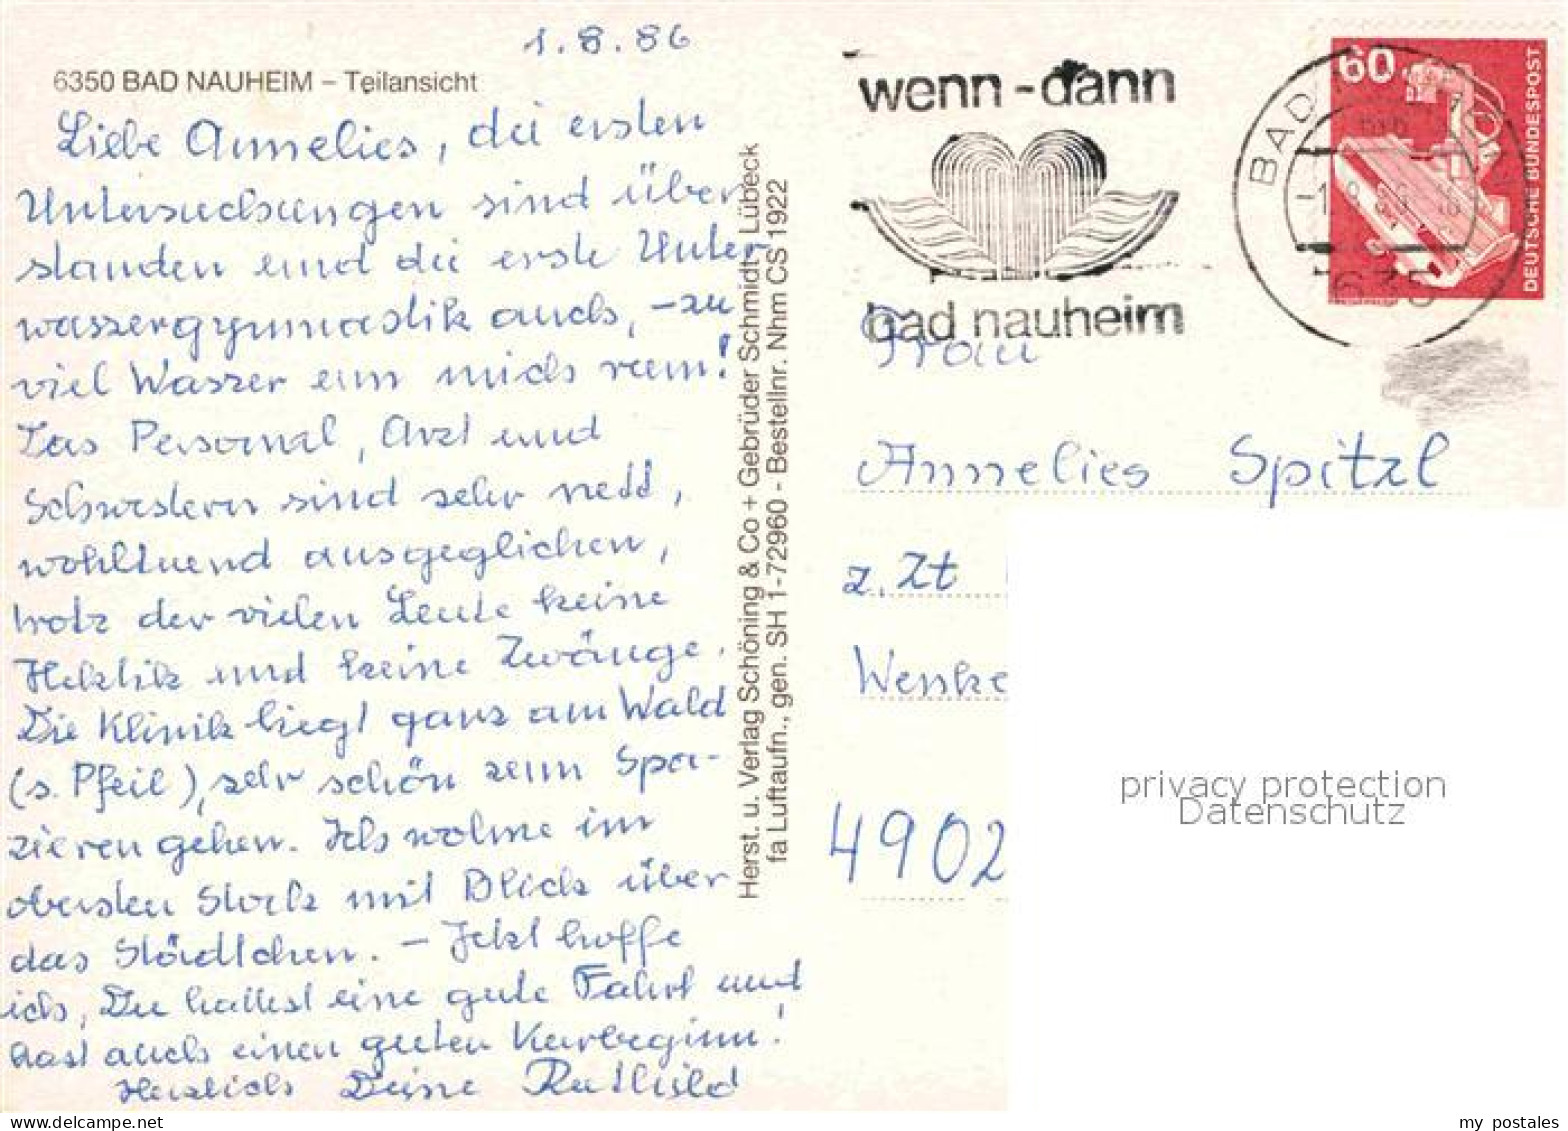 1.8.86
6350 BAD NAUHEIM – Teilansicht
Liebe Annelies, die ersten
Untersuchungen sind über
standen und die erste Unter
wassergymnastik auch, – zu
viel Wasser um mich rum!
Das Personal, Arzt und
Schwestern sind sehr nett,
wohltuend ausgeglichen,
trotz der vielen Leute keine
Hektik und keine Zwänge.
Die Klinik liegt ganz am Wald
(s. Pfeil), sehr schön zum Spa-
zieren gehen. Ich wohne im
obersten Stock mit Blick über
das Städtchen. – Jetzt hoffe
ich, Du hattest eine gute Fahrt und
hast auch einen guten Kurbeginn!
Herzlich Deine Ruthild
Herst. u. Verlag Schöning & Co + Gebrüder Schmidt, Lübeck
fa Luftaufn., gen. SH 1-72960 - Bestellnr. Nhm CS 1922
wenn-dann
bad nauheim
BAD
-1.8.86.18
635
60
DEUTSCHE BUNDESPOST
Frau
Annelies Spitzl
z. Zt
Wenke
4902
privacy protection
Datenschutz
my postales